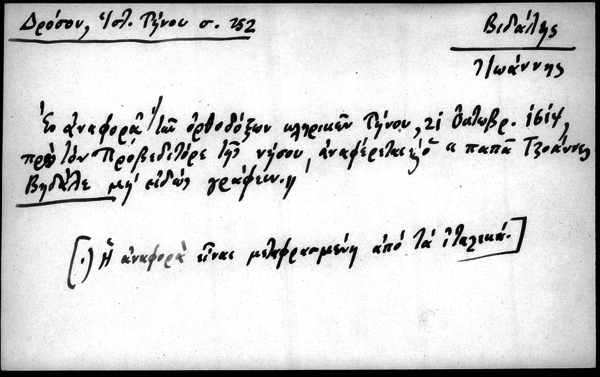 Δρόσου, Ἱστ. Τήνου σ. 252
Βιδάλης
Ἰωάννης
Ἐν ἀναφορᾷ τῶν ὀρθοδόξων κληρικῶν Τήνου, 21 Ὀκτωβρ. 1614,
πρὸς τὸν Προβεδιτόρε τῆς νήσου, ἀναφέρεται ὁ « παπᾶ Τζοάννες
Βηδάλε μὴ εἰδὼς γράφειν. »
[(.) Ἡ ἀναφορὰ εἶναι μεταφρασμένη ἀπό τά ἰταλικά.]